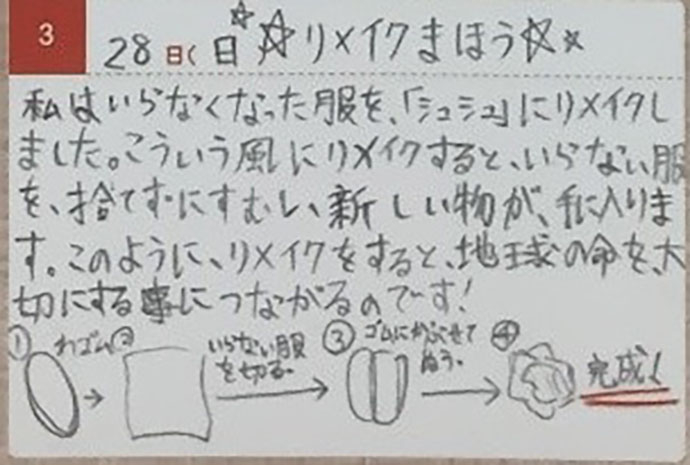 3
28日(日 ☆☆リメイクまほう☆☆
私はいらなくなった服を、「シュシュ」にリメイクし
ました。こういう風にリメイクすると、いらない服
を、捨てずにすむし、新しい物が、手に入りま
す。このように、リメイクをすると、地球の命を、大
切にする事につながるのです!
① わゴム ② いらない服を切る。 ③ ゴムにかぶせてぬう。 ④ 完成!